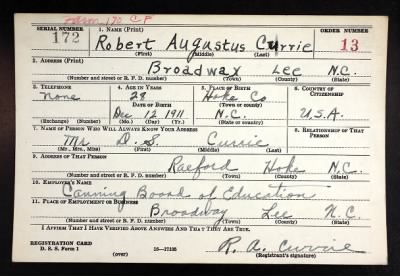 Form 170 CP
SERIAL NUMBER 1. NAME (Print) ORDER NUMBER
172 Robert Augustus Currie 13
(First) (Middle) (Last)
2. ADDRESS (Print)
Broadway Lee N.C.
(Number and street or R. F. D. number) (Town) (County) (State)
3. TELEPHONE 4. AGE IN YEARS 5. PLACE OF BIRTH 6. COUNTRY OF CITIZENSHIP
None 28 Hoke Co
DATE OF BIRTH
Dec 12 1911 N.C. U.S.A.
(Exchange) (Number) (Mo.) (Day) (Yr.) (State or country)
7. NAME OF PERSON WHO WILL ALWAYS KNOW YOUR ADDRESS 8. RELATIONSHIP OF THAT PERSON
Mr D. S. Currie
(Mr., Mrs., Miss) (First) (Middle) (Last)
9. ADDRESS OF THAT PERSON
Raeford Hoke N.C.
(Number and street or R. F. D. number) (Town) (County) (State)
10. EMPLOYER'S NAME
Board of Education
11. PLACE OF EMPLOYMENT OR BUSINESS
Broadway Lee N.C.
(Number and street or R. F. D. number) (Town) (County) (State)
I AFFIRM THAT I HAVE VERIFIED ABOVE ANSWERS AND THAT THEY ARE TRUE.
REGISTRATION CARD
D. S. S. Form 1 (over) 16—17105 R. A. Currie
(Registrant's signature)